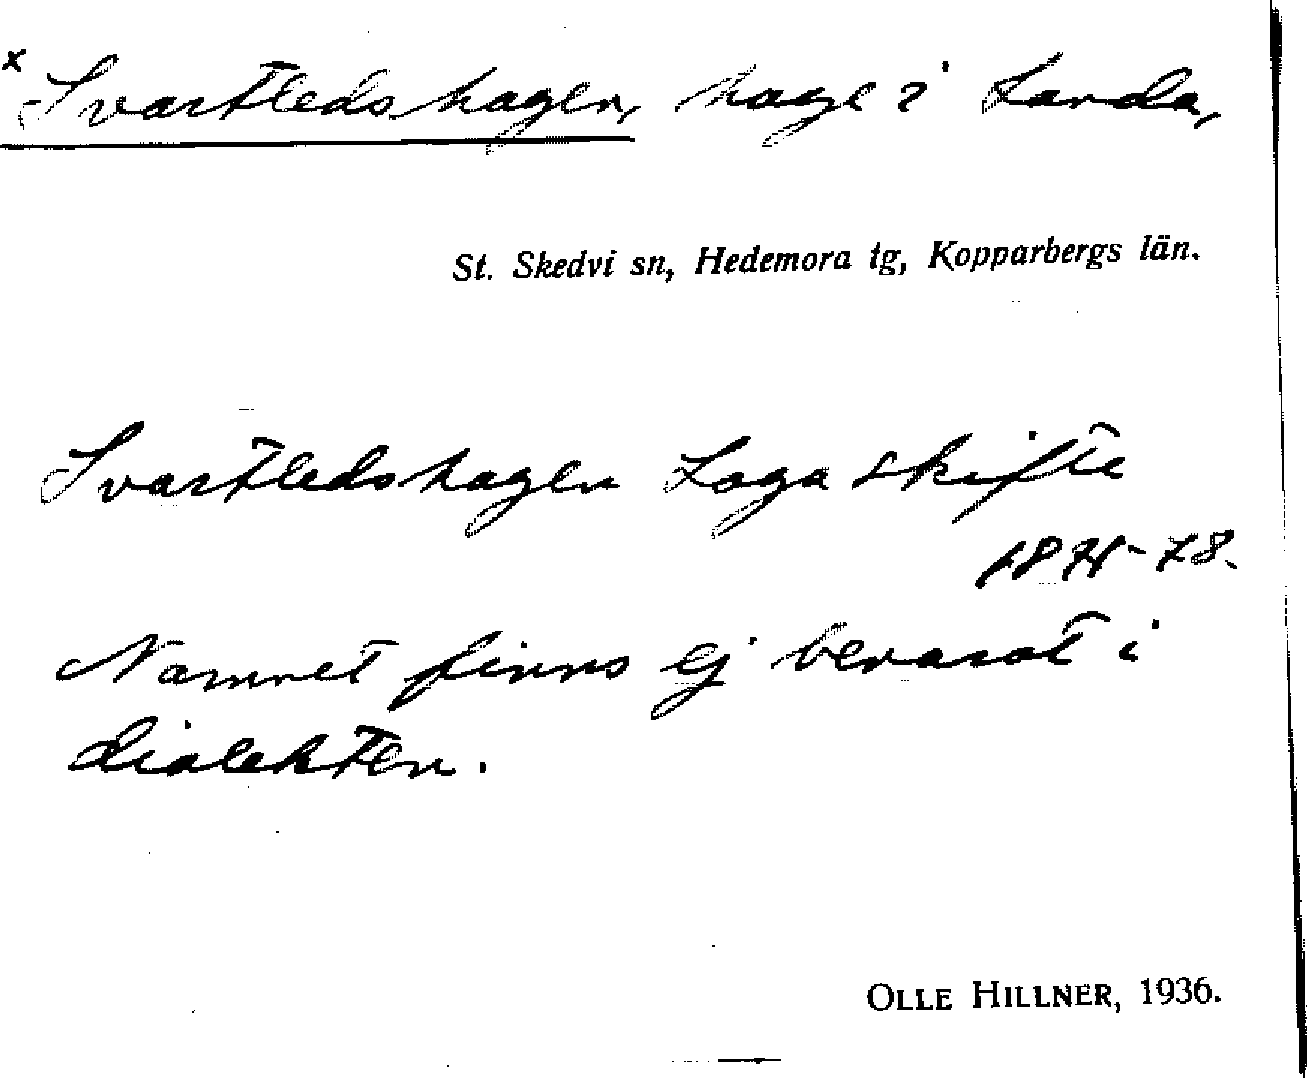 x Svartledshagen, hage i Landa,
St. Skedvi sn, Hedemora tg, Kopparbergs län.
Svartledshagen Laga skifte
1871-78.
Namnet finns ej bevarat i
dialekten.
OLLE HILLNER, 1936.